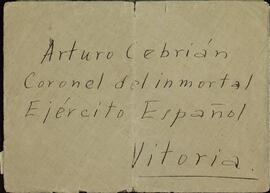 Arturo Cebrián
Coronel del inmortal
Ejército Español
Vitoria.